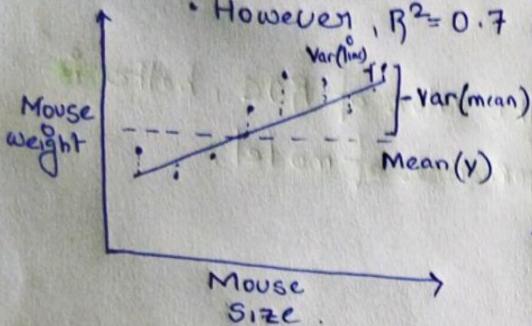 • However, R² = 0.7
Var(line)
Var(mean)
Mouse
weight
Mean(y)
Mouse
Size.